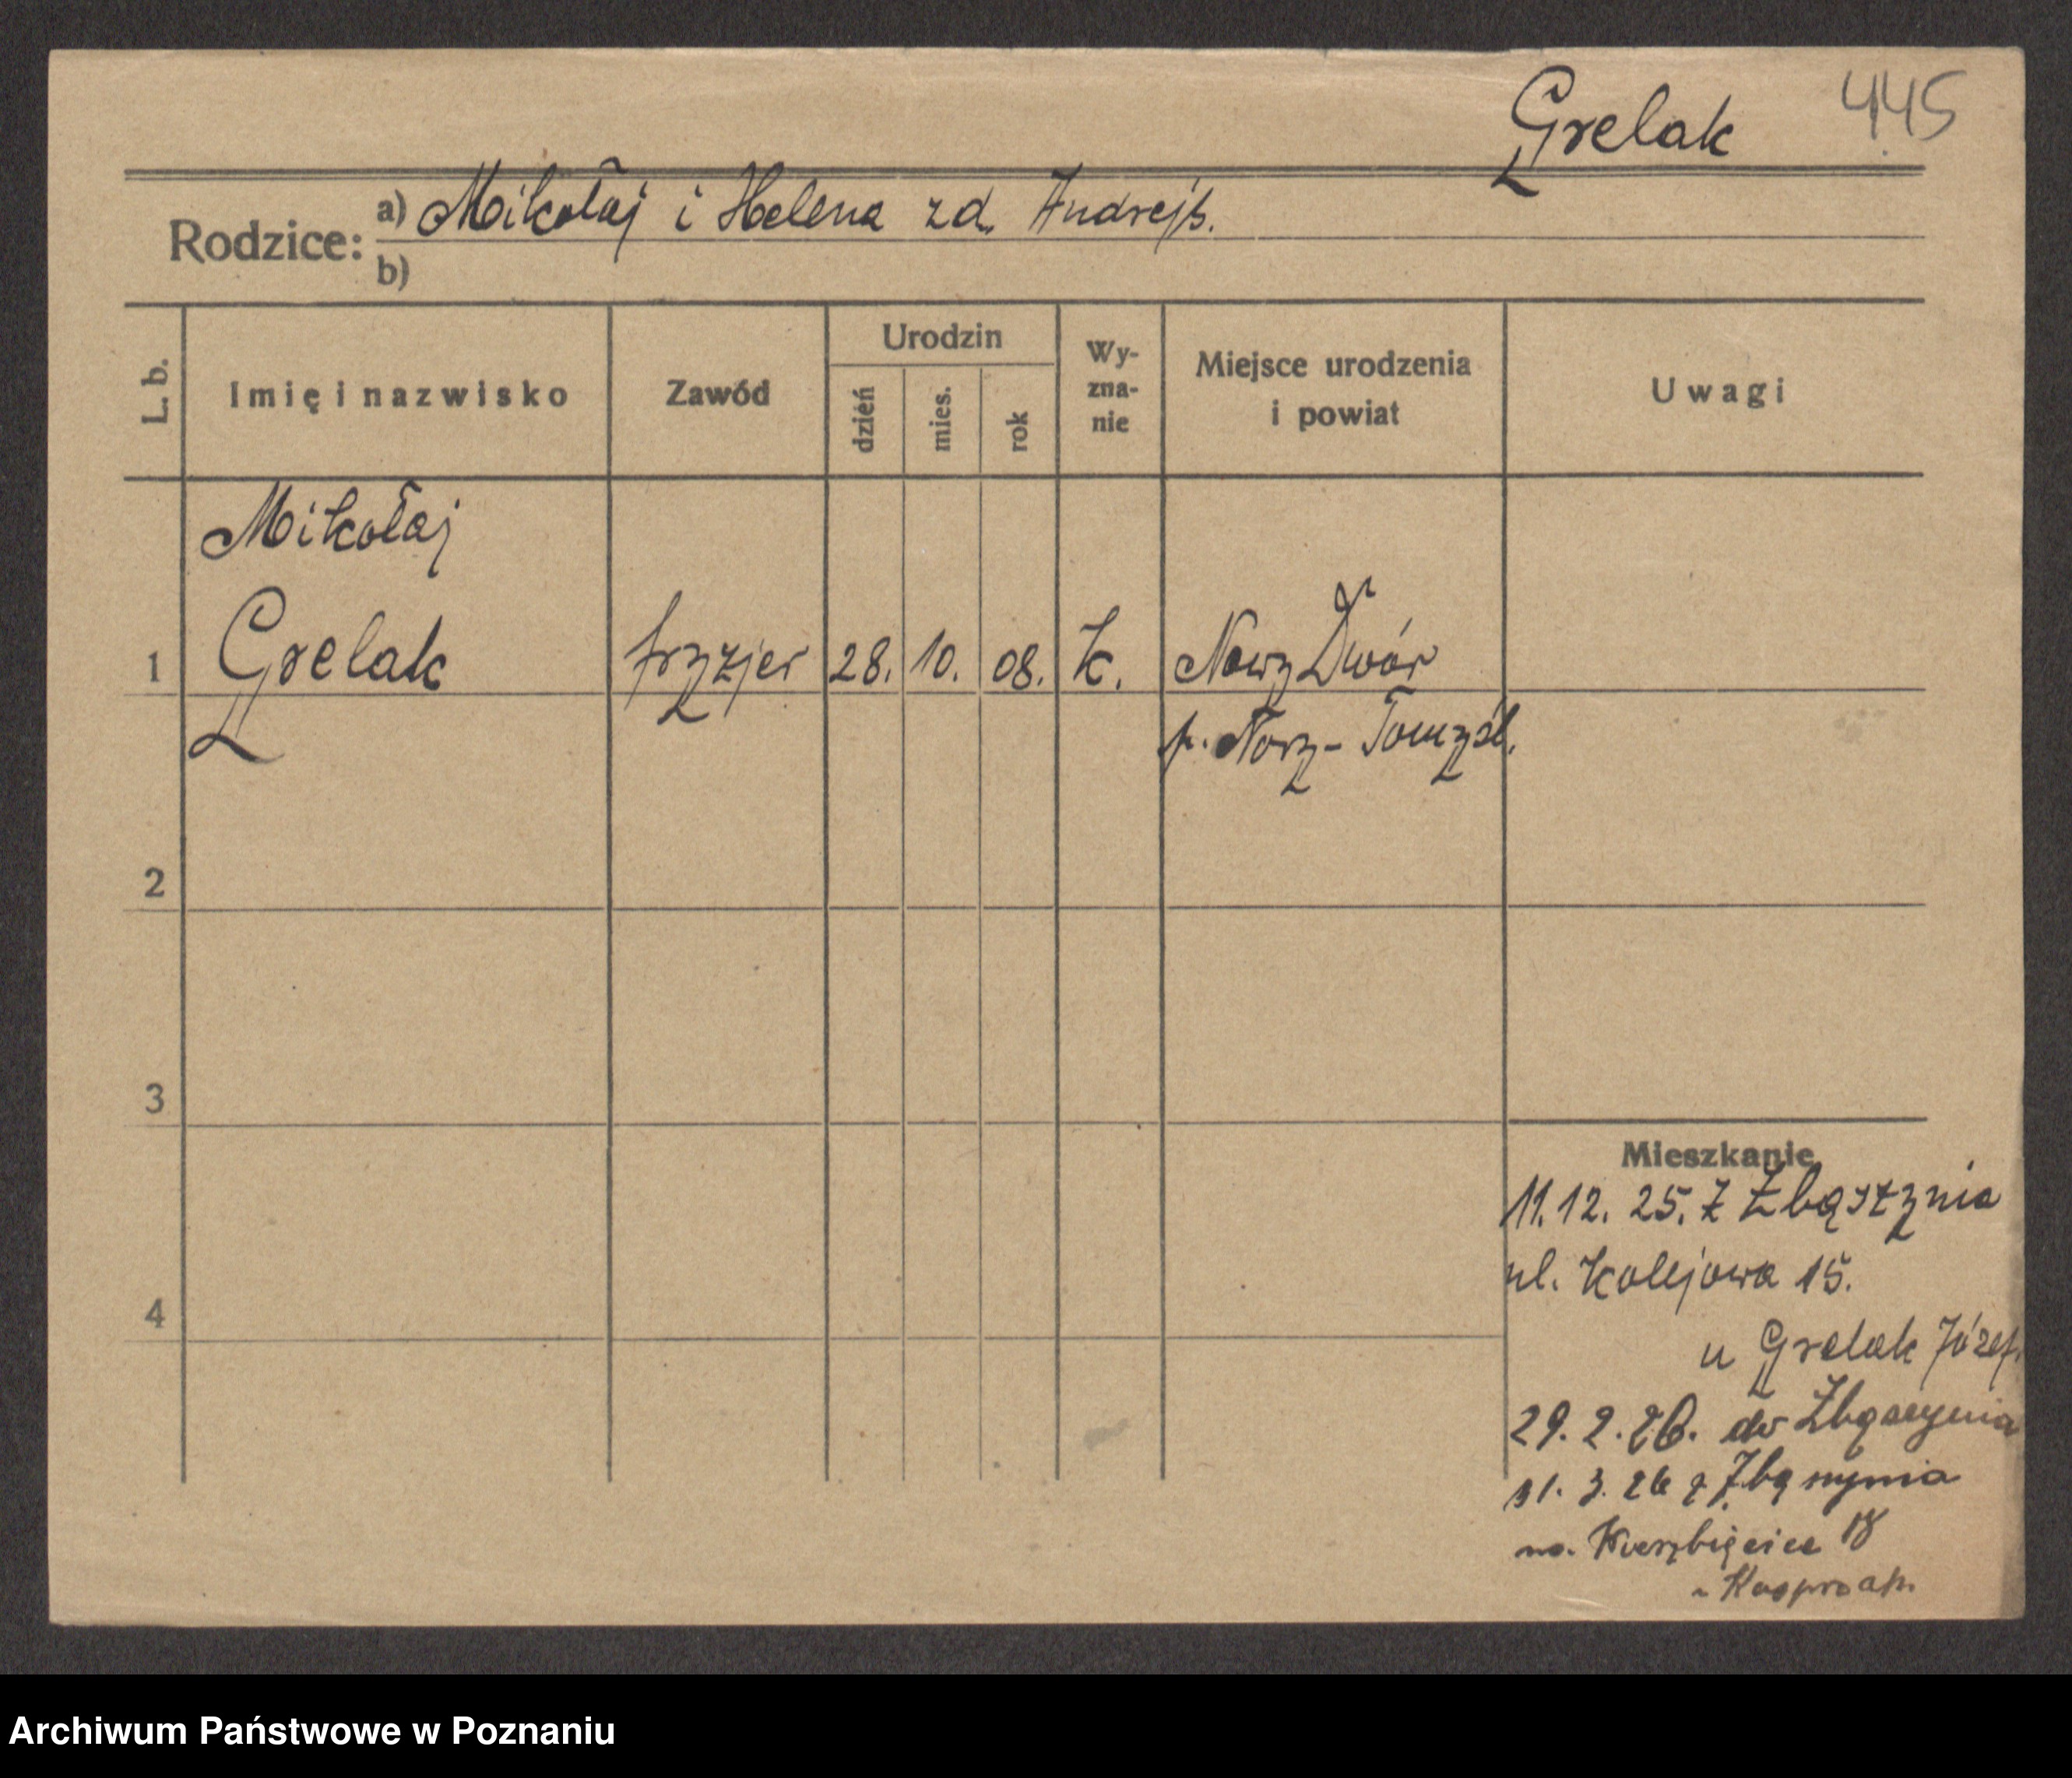 Grelak 445
Rodzice: a) Mikołaj i Helena zd. Andrejs.
b)
L. b. Imię i nazwisko Zawód Urodzin dzień mies. rok Wy- zna- nie Miejsce urodzenia i powiat Uwagi
Mikołaj
1 Grelak fryzjer 28. 10. 08. k. Nowy Dwór
p. Nowy-Tomyśl.
2
3
Mieszkanie
11.12. 25. z Zbąszynia
ul. Kolejowa 15.
4
u Grelak Józef.
29. 2. 26. do Zbąszynia
31. 3. 26 z Zbąszynia
na. Wierzbięcice 18
Archiwum Państwowe w Poznaniu